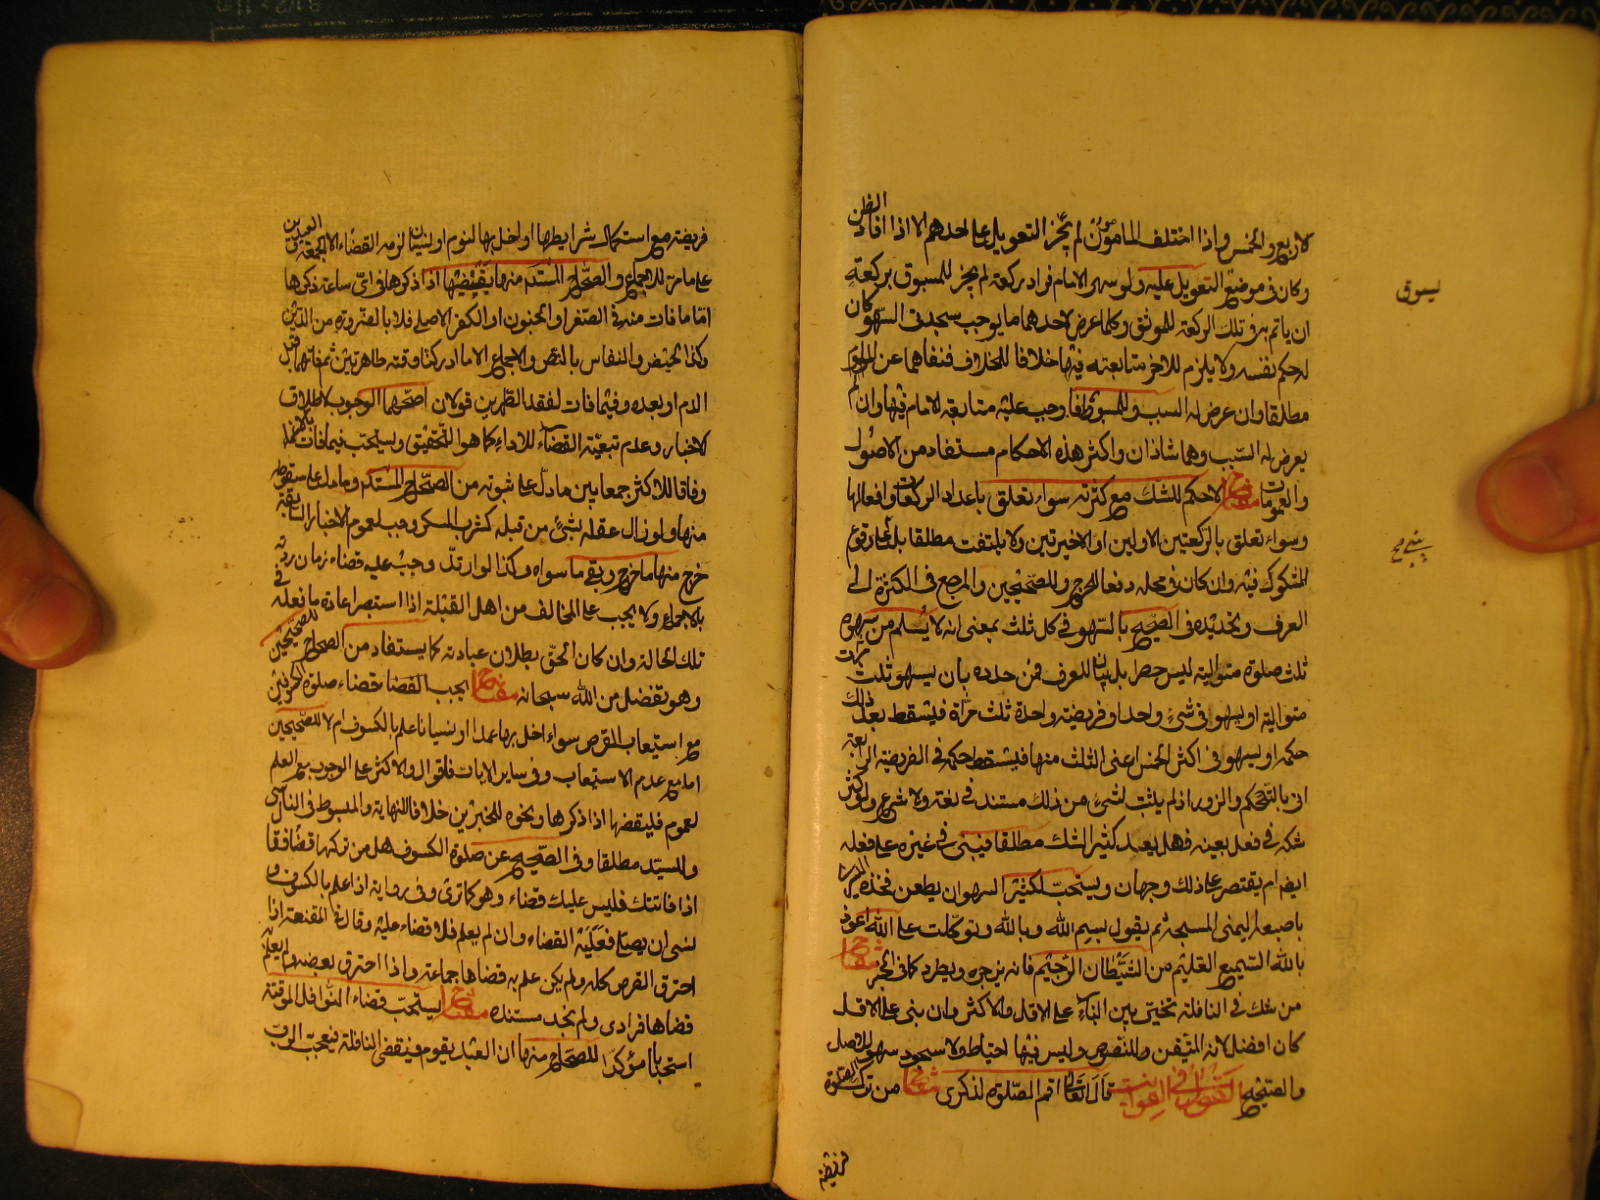 لاربع والخمس واذا اختلف المأمومون لم يجز التعويل على احدهم الا اذا افاد الظن
وكان في موضع التعويل عليه ولو سهى الامام فزاد ركعة لم يجز للمسبوق بركعة
ان ياتم به في تلك الركعة للموثق وكلما عرض لاحدهما ما يوجب سجدتي السهو كان
له حكم نفسه ولا يلزم للاخر متابعته فيها خلافا للخلاف فنفاهما عن المأموم
مطلقا وان عرض له السبب وللمبسوط فاوجب عليه متابعة الامام فيها وان لم
يعرض له السبب وهما شاذان واكثر هذه الاحكام مستفاد من الاصول
والعمومات مفتاح لاحكم للشك مع كثرته سواء تعلق باعداد الركعات وافعالها
وسواء تعلق بالركعتين الاوليين او الاخيرتين ولا يلتفت مطلقا بل يبنى على وقوع
المشكوك فيه وان كان في محله دفعا للحرج وللصحيحين والمرجع في الكثرة الى
العرف وتحديده في الصحيح بالسهو في كل ثلث بمعنى انه لا يسلم من سهوه
ثلث صلوة متوالية ليس حصرا بل بيان للعرف فمن حدده بان يسهو ثلث مرات
متوالية او يسهو في شيء واحد او فريضة واحدة ثلث مرات فيسقط بعد ذلك
حكمه او يسهو في اكثر الخمس اعني الثلث منها فيسقط حكمه في الفريضة الرابعة
اتى بالتحكم والزور اذ لم يثبت لشيء من ذلك مستند في لغة ولا شرع ولو كثر
شكه في فعل بعينه فهل يعد كثير الشك مطلقا فيبنى في غيره على فعله
ايضا ام يقتصر على ذلك وجهان ويستحب لكثير السهو ان يطعن فخذه اليسرى
باصبعه اليمنى المسبحة ثم يقول بسم الله وبالله وتوكلت على الله اعوذ
بالله السميع العليم من الشيطان الرجيم فانه يزجره ويطرده كما في الخبر مفتاح
من شك في النافلة تخير بين البناء على الاقل والاكثر وان بنى على الاقل
كان افضل لانه المتيقن وللنصوص وليس فيها احتياط ولا سجود سهو للاصل
والصحيح القول في الفوايت قال الله تعالى اقم الصلوة لذكري مفتاح من ترك الصلوة
فريضة
يسوق
يبنى صح
فريضة مع استكمال شرايطها او اخل بها لنوم او لنسيان لزمه القضاء الا الجمعة والعيدين
على ما مر للاجماع وللصحاح المستفيضة منها يقضيها اذا ذكرها في اي ساعة ذكرها
اما ما فات منه في الصغر او الجنون او الكفر الاصلي فلا بالضرورة من الدين
وكذا الحيض والنفاس بالنص والاجماع الا ما ادركتا وقته طاهرتين ثم فاتهما قبل
الدم او بعده وفيما فات لفقد الطهورين قولان اصحهما الوجوب لاطلاق
الاخبار وعدم تبعية القضاء للاداء كما هو التحقيق ويستحب فيما فات بالاغماء
وفاقا للاكثر جمعا بين ما دل على ثبوته من الصحاح المستفيضة وما دل على سقوطه
منها ولو زال عقله بشيء من قبله كشرب المسكر وجب لعموم الاخبار السابقة
خرج منها ما خرج وبقي ما سواه وكذا لو ارتد وجب عليه قضاء زمان ردته
بالاجماع ولا يجب على المخالف من اهل القبلة اذا استبصر اعادة ما فعله في
تلك الحالة وان كان الحق بطلان عبادته كما يستفاد من الصحاح للصحيحين
وهو تفضل من الله سبحانه مفتاح يجب القضاء قضاء صلوة الكسوفين
مع استيعاب القرص سواء اخل بها عمدا او نسيانا علم بالكسوف ام لا للصحيحين
اما مع عدم الاستيعاب وفي ساير الايات فاقوال والاكثر على الوجوب مع العلم
لعموم فليقضها اذا ذكرها ونحوه للخبرين خلافا للنهاية والمبسوط في الناسي
وللسيد مطلقا وفي الصحيح عن صلوة الكسوف هل من تركها قضا فقال
اذا فاتتك فليس عليك قضاء وهو كما ترى وفي رواية اذا علم بالكسوف و
نسى ان يصلي فعليه القضاء وان لم يعلم فلا قضاء عليه وقال في المقنعة اذا
احترق القرص كله ولم يكن علم به قضاها جماعة واذا احترق بعضه ولم يعلم
قضاها فرادى ولم نجد مستنده مفتاح يستحب قضاء النوافل الموقتة
استحبابا مؤكدا للصحاح منها ان العبد يقوم فيقضي النافلة فيعجب الرب